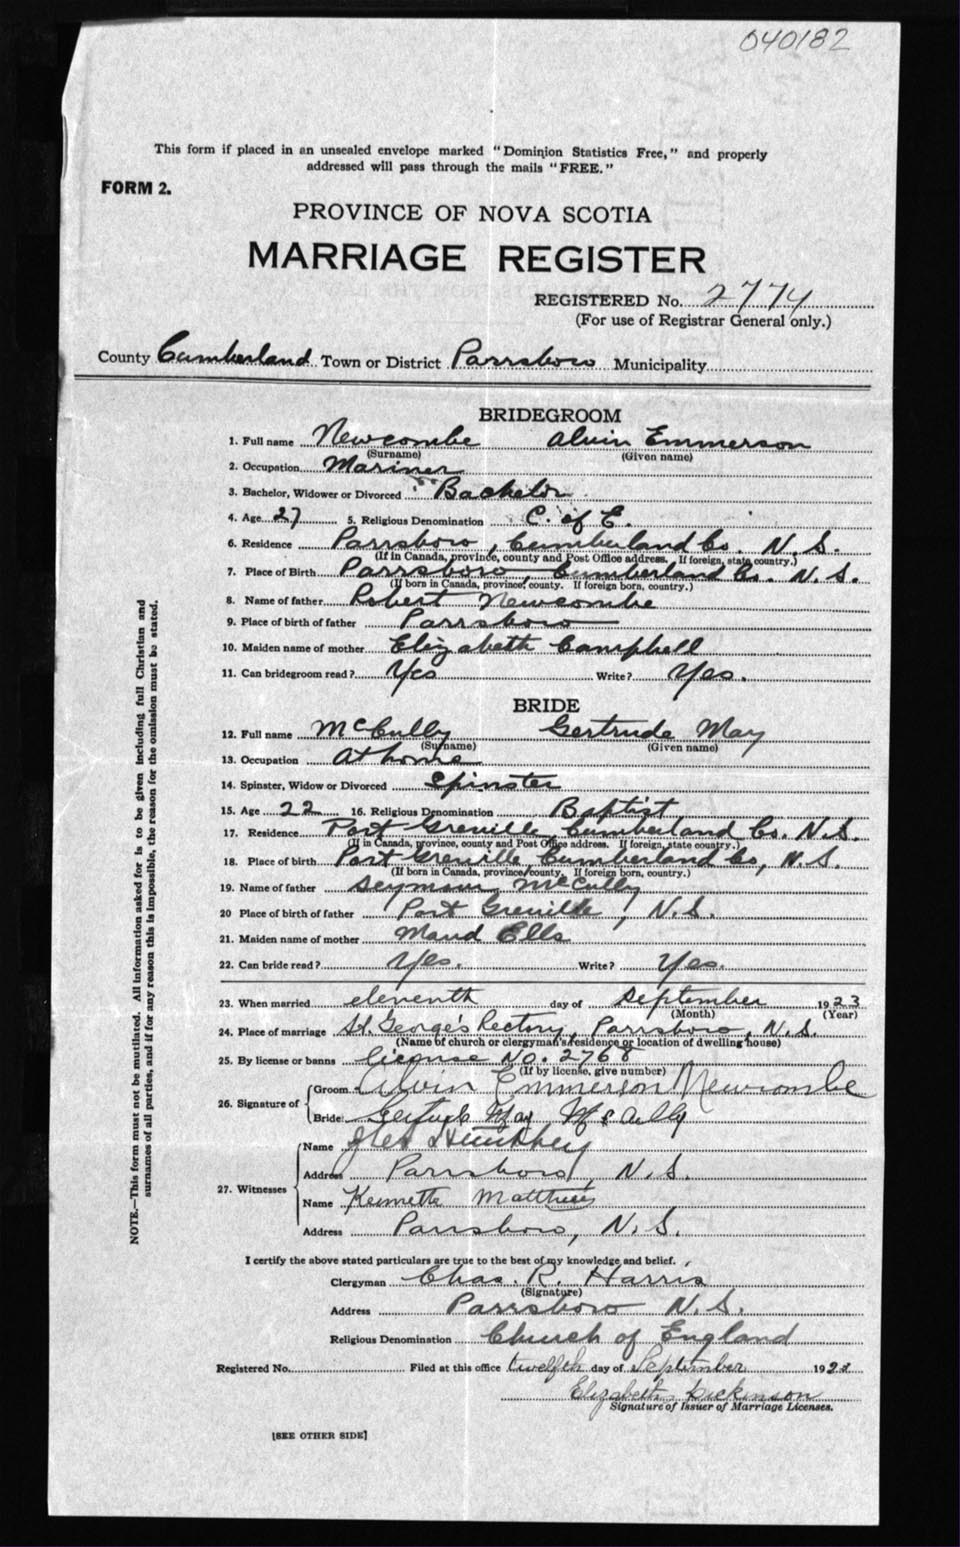 040182
This form if placed in an unsealed envelope marked "Dominion Statistics Free," and properly
addressed will pass through the mails "FREE."
FORM 2.
PROVINCE OF NOVA SCOTIA
MARRIAGE REGISTER
REGISTERED No. 2774
(For use of Registrar General only.)
County Cumberland Town or District Parrsboro Municipality
BRIDEGROOM
1. Full name Newcombe Alvin Emmerson
(Surname) (Given name)
2. Occupation Mariner
3. Bachelor, Widower or Divorced Bachelor
4. Age 27 5. Religious Denomination C. of E.
6. Residence Parrsboro, Cumberland Co. N.S.
(If in Canada, province, county and Post Office address. If foreign, state country.)
7. Place of Birth Parrsboro, Cumberland Co. N.S.
(If born in Canada, province, county. If foreign born, country.)
8. Name of father Robert Newcombe
9. Place of birth of father Parrsboro
10. Maiden name of mother Elizabeth Campbell
11. Can bridegroom read? Yes Write? Yes.
BRIDE
12. Full name McCully Gertrude May
(Surname) (Given name)
13. Occupation at home
14. Spinster, Widow or Divorced Spinster
15. Age 22 16. Religious Denomination Baptist
17. Residence Port Greville, Cumberland Co. N.S.
(If in Canada, province, county and Post Office address. If foreign, state country.)
18. Place of birth Port Greville, Cumberland Co, N.S.
(If born in Canada, province, county. If foreign born, country.)
19. Name of father Seymour McCully
20 Place of birth of father Port Greville, N.S.
21. Maiden name of mother Maud Ells
22. Can bride read? Yes. Write? Yes.
23. When married eleventh day of September 1923
(Month) (Year)
24. Place of marriage St. George's Rectory, Parrsboro, N.S.
(Name of church or clergyman's residence or location of dwelling house)
25. By license or banns license No. 2768
(If by license, give number)
26. Signature of Groom Alvin Emmerson Newcombe
Bride Gertrude May McCully
27. Witnesses
Name
Address Parrsboro, N.S.
Name Kenneth Matthews
Address Parrsboro, N.S.
I certify the above stated particulars are true to the best of my knowledge and belief.
Clergyman Chas. R. Harris
(Signature)
Address Parrsboro N.S.
Religious Denomination Church of England
Registered No. Filed at this office twelfth day of September 1923
Elizabeth Dickinson
Signature of Issuer of Marriage Licenses.
[SEE OTHER SIDE]
NOTE.—This form must not be mutilated. All information asked for is to be given including full Christian and
surnames of all parties, and if for any reason this is impossible, the reason for the omission must be stated.